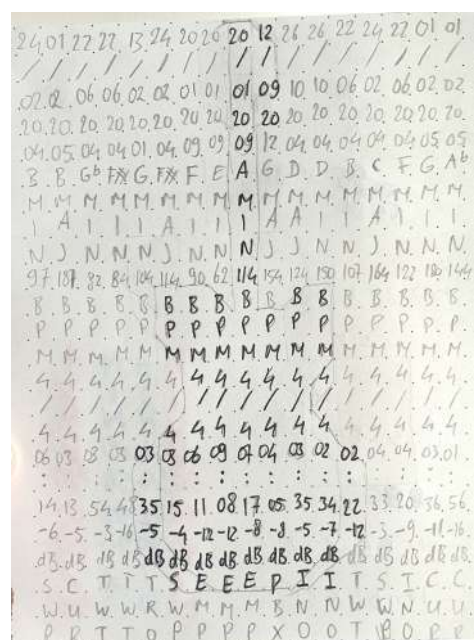 24 01 22 22 13 24 20 20 20 12 26 26 22 24 22 01 01
/ / / / / / / / / / / / / / / / /
02. 02. 06. 06. 02. 02. 01 01 01 09 10. 10. 02. 06 02. 02.
20. 20. 20. 20. 20. 20. 20 20 20 20. 20. 20. 20. 20. 20. 20.
04. 05 04 04 01 04. 09 09 09 12 04. 04. 04 04 04 05 05
B. B. G♭ G. F. E A. G D. D. B. C F G. A♭
M M M M M M M M M M M M M M M M M
I A I I I A I I I A A I I A I I I
N J N N N J N N N J J N N J N N N
97. 187. 82 84 104 114 90 62 114 154 124 150 107 164 122 144
B B B B B B B B B B B B B B B B B
P P P P P P P P P P P P P P P P P
M M M M M M M M M M M M M M M M M
4 4 4 4 4 4 4 4 4 4 4 4 4 4 4 4 4
/ / / / / / / / / / / / / / / / /
4 4 4 4 4 4 4 4 4 4 4 4 4 4 4 4 4
06 03 03 03 03 03 06 09 07 04 03 02 02 04. 04. 03. 01
: : : : : : : : : : : : : : : : :
14. 13. 54. 48 35 15. 11. 08 17 05. 35 34. 22 33 20. 36. 56
-6. -5. -3 -16 -5 -4 -12 -12 -8 -8 -5 -7 -12 -3. -9. -11 -16
dB dB dB dB dB dB dB dB dB dB dB dB dB dB dB dB dB
S C T T T S E E E P I I T S I C C
W U W W R W M M M B N N W W N U U
P R T T O P P P P X O O T P O R R